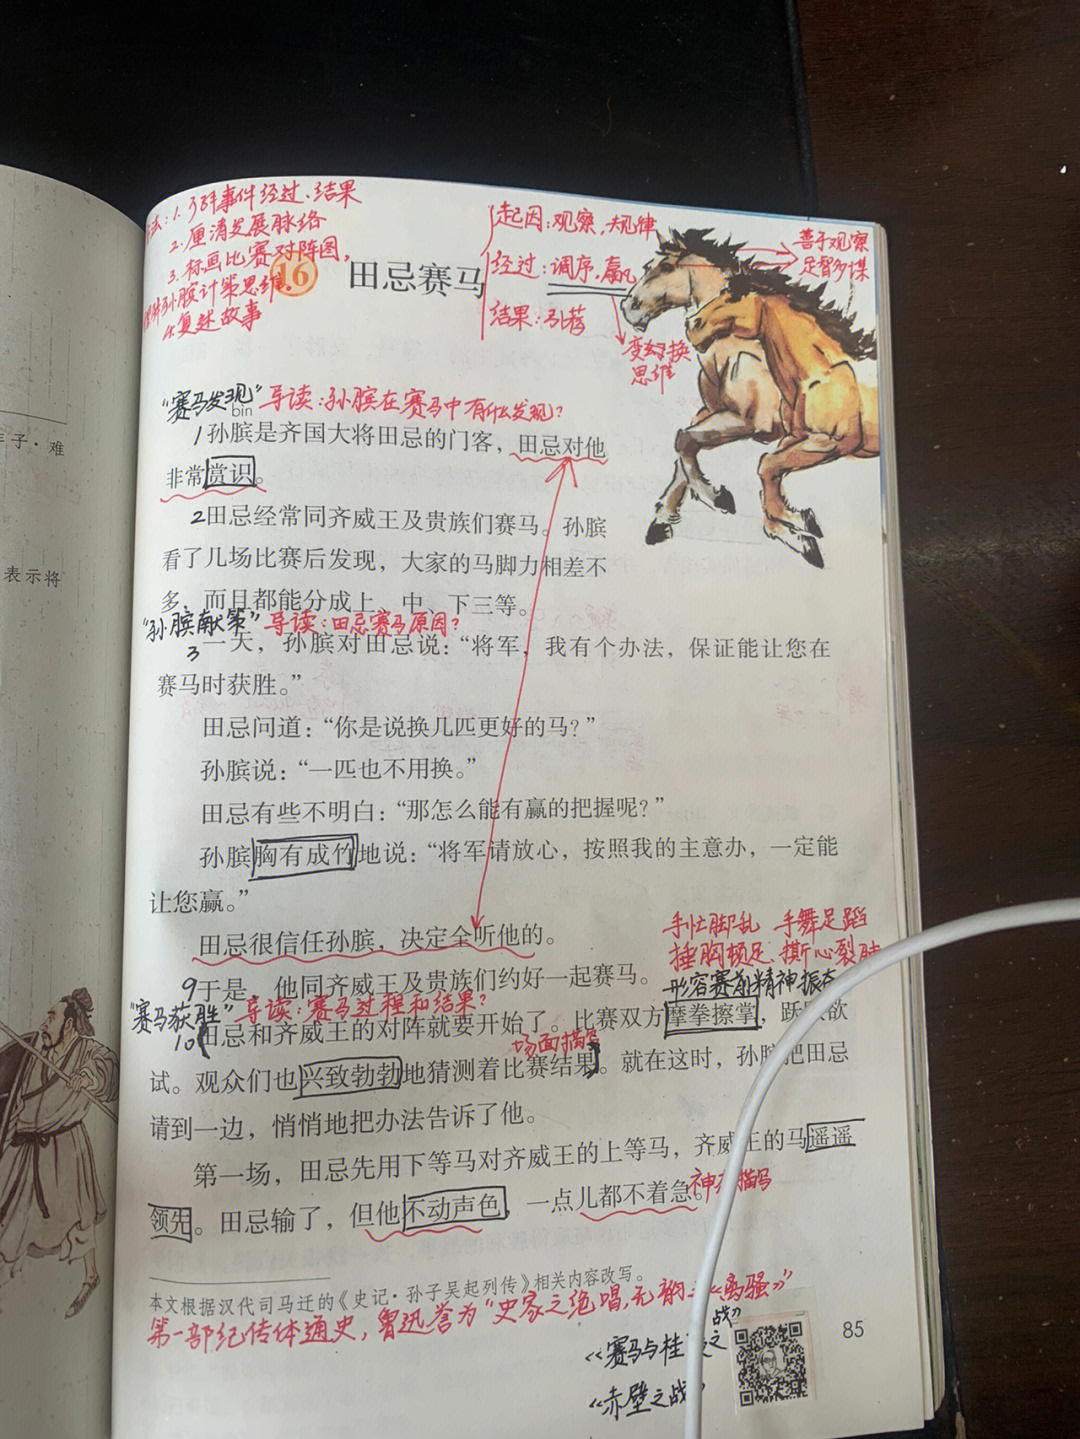 法：1.了解事件经过、结果
2.厘清发展脉络
3.标画比赛对阵图，
孙膑计策思维.
4.复述故事
起因：观察，规律
经过：调序，赢
结果：引荐
善于观察
足智多谋
变换
思维
16 田忌赛马
“赛马发现” 导读：孙膑在赛马中有什么发现？
bìn
1孙膑是齐国大将田忌的门客，田忌对他
非常赏识。
2田忌经常同齐威王及贵族们赛马。孙膑
看了几场比赛后发现，大家的马脚力相差不
多，而且都能分成上、中、下三等。
“孙膑献策” 导读：田忌赛马原因？
3一天，孙膑对田忌说：“将军，我有个办法，保证能让您在
赛马时获胜。”
田忌问道：“你是说换几匹更好的马？”
孙膑说：“一匹也不用换。”
田忌有些不明白：“那怎么能有赢的把握呢？”
孙膑胸有成竹地说：“将军请放心，按照我的主意办，一定能
让您赢。”
田忌很信任孙膑，决定全听他的。
手忙脚乱 手舞足蹈
捶胸顿足、撕心裂肺
形容赛前精神振奋
9于是，他同齐威王及贵族们约好一起赛马。
“赛马获胜” 导读：赛马过程和结果？
10田忌和齐威王的对阵就要开始了。比赛双方摩拳擦掌，跃跃欲
场面描写
试。观众们也兴致勃勃地猜测着比赛结果。就在这时，孙膑把田忌
请到一边，悄悄地把办法告诉了他。
第一场，田忌先用下等马对齐威王的上等马，齐威王的马遥遥
领先。田忌输了，但他不动声色，一点儿都不着急。
神态描写
本文根据汉代司马迁的《史记·孙子吴起列传》相关内容改写。
第一部纪传体通史，鲁迅誉为“史家之绝唱，无韵之《离骚》”
《赛马与桂之战》
《赤壁之战》
85
年子·难
表示将